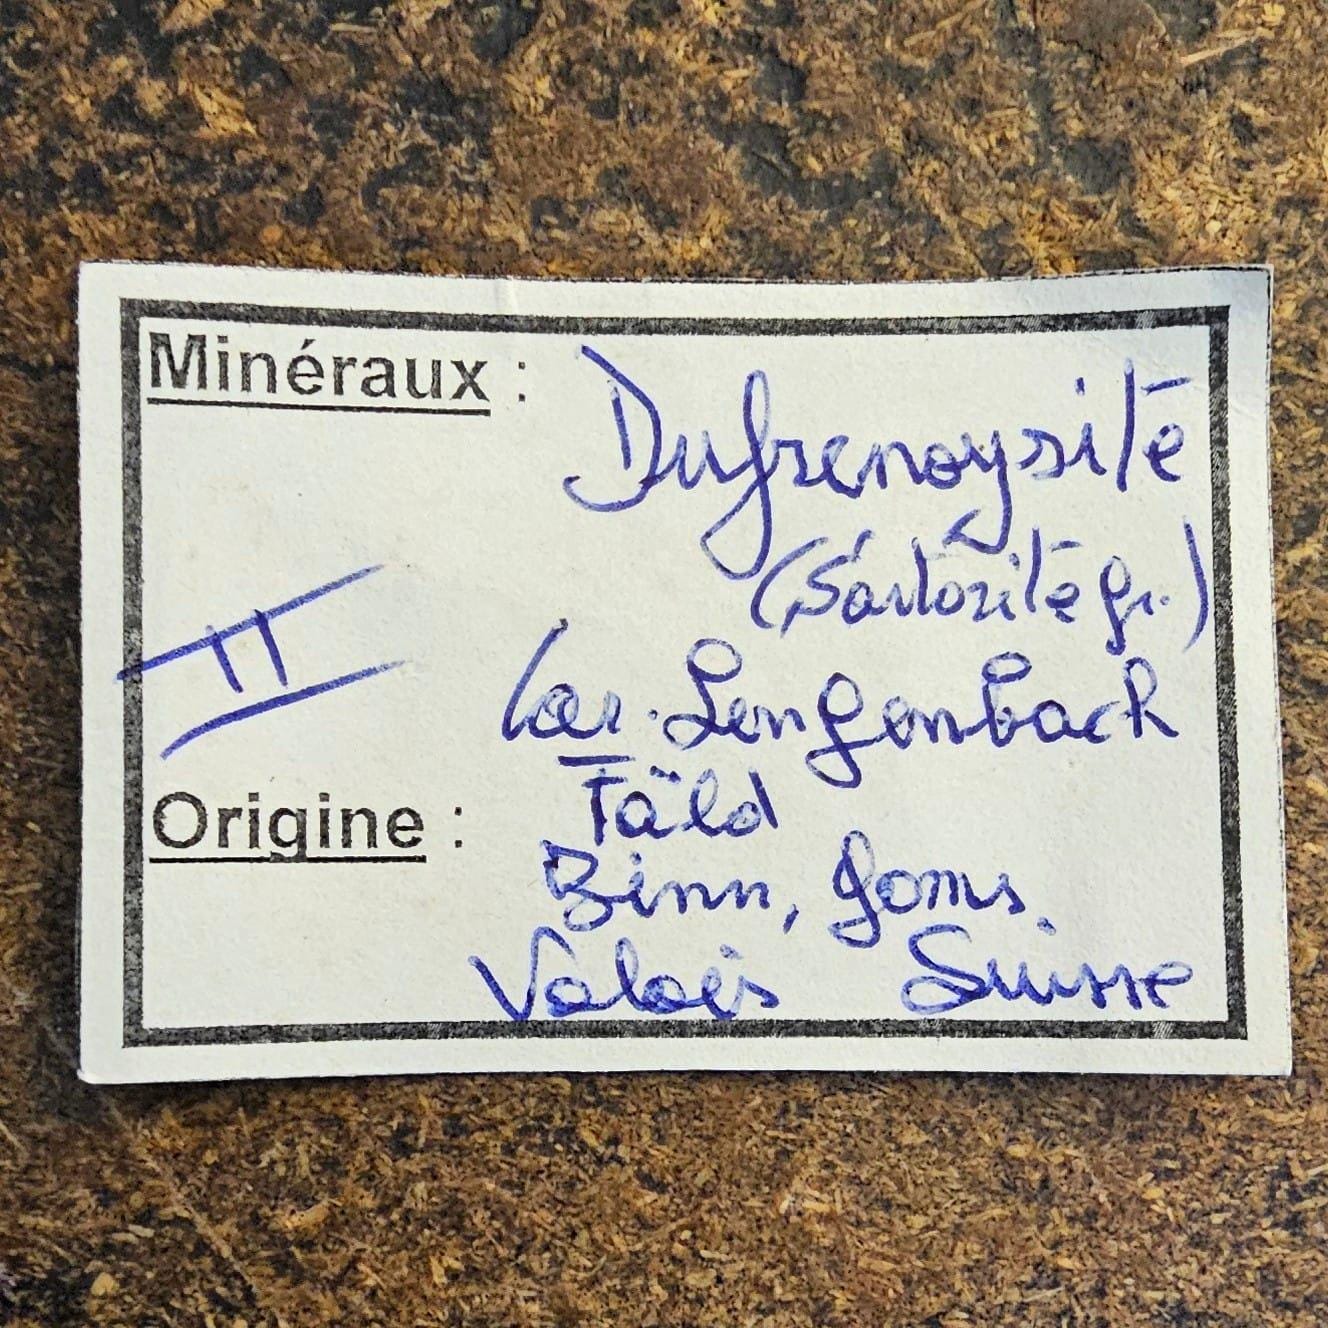 Minéraux : Dufrenoysite
(Sartorite gr.)
II
Car. Lengenbach
Fäld
Origine :
Binn, Goms.
Valais Suisse